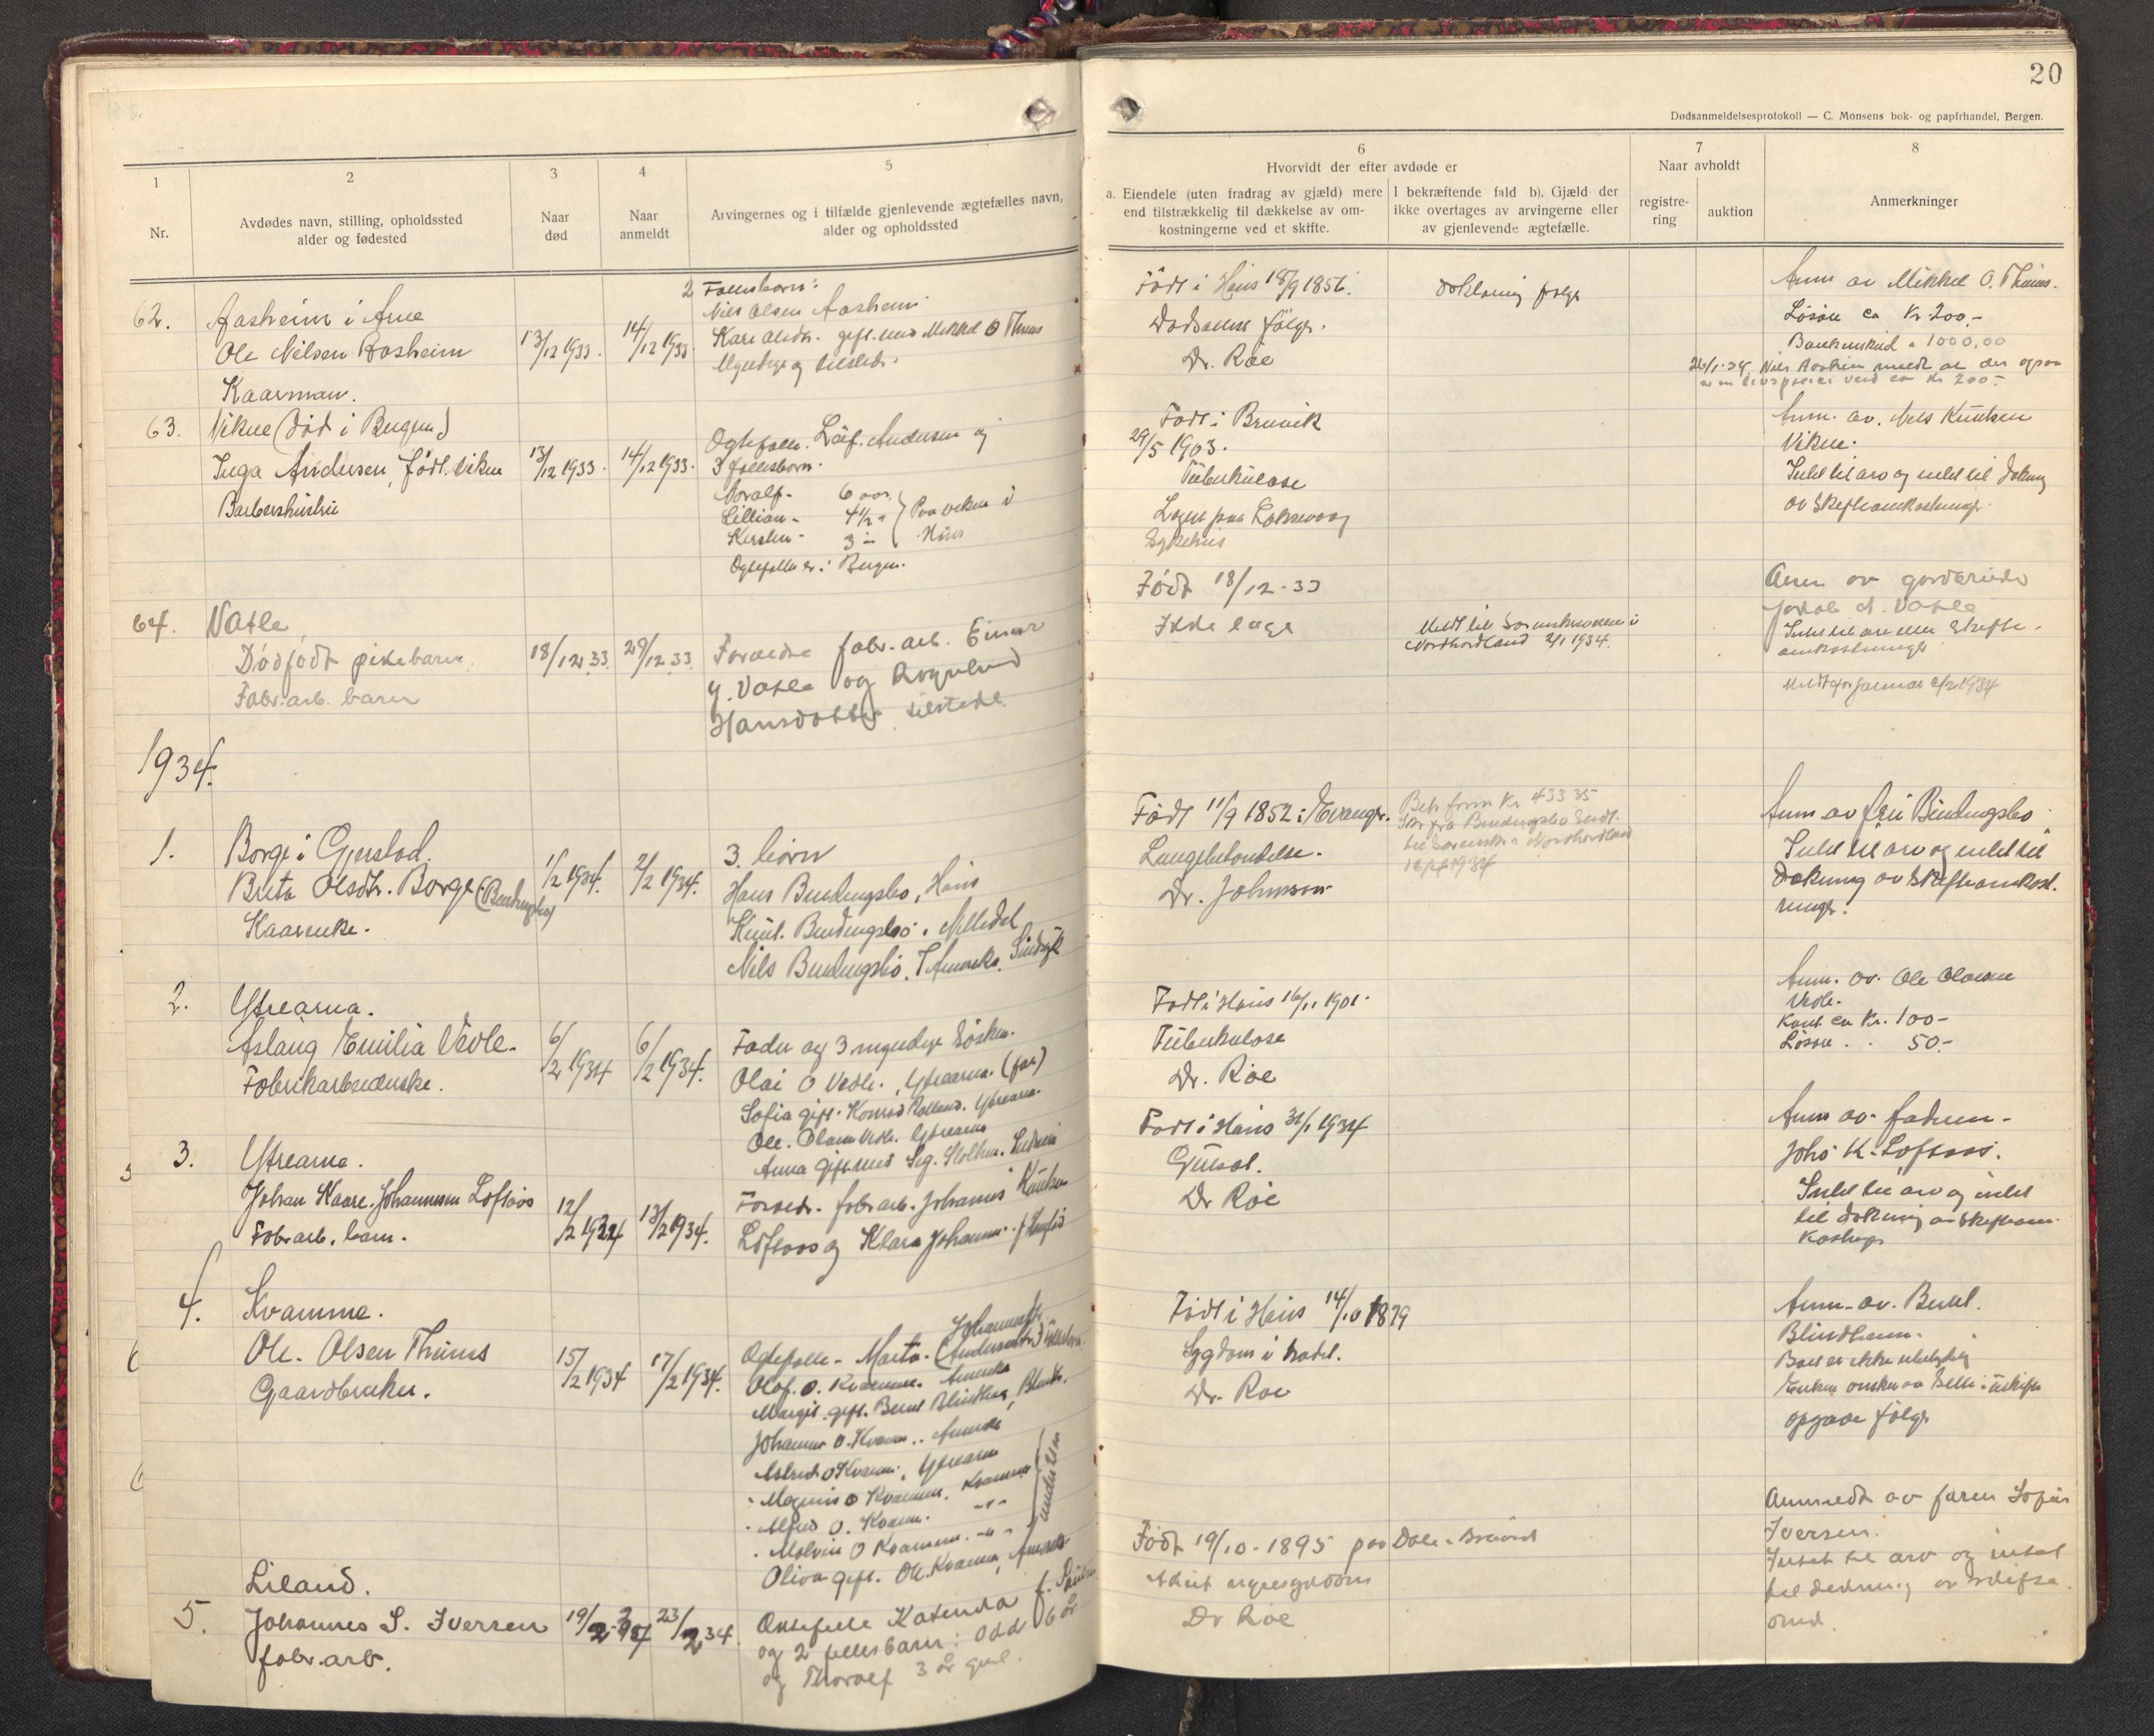 20
Dødsanmeldelsesprotokoll — C. Monsens bok- og papirhandel, Bergen.
1
Nr.
2
Avdødes navn, stilling, opholdssted
alder og fødested
3
Naar
død
4
Naar
anmeldt
5
Arvingernes og i tilfælde gjenlevende ægtefælles navn,
alder og opholdssted
6
Hvorvidt der efter avdøde er
a. Eiendele (uten fradrag av gjæld) mere
end tilstrækkelig til dækkelse av om-
kostningerne ved et skifte.
I bekræftende fald b). Gjæld der
ikke overtages av arvingerne eller
av gjenlevende ægtefælle.
7
Naar avholdt
registre-
ring
auktion
8
Anmerkninger
62.
Aasheim i Arne
Ole Nilsen Aasheim
Kaarman.
13/12 1933.
14/12 1933.
2 Fellesbarn:
Nils Olsen Aasheim
Kari Olsdtr. gift med Mikkel O Thunes
Myndige og tilstede.
Født i Haus 18/9 1856.
følger.
Dr. Roe
følger
Anm av Mikkel O. Thunes.
Løsøre ca Kr. 200.-
Bankinnskud " 1000,00
63.
Vikne (død i Bergen)
Inga Andersen, født Vikne
Barberhustru
13/12 1933.
14/12 1933.
Ogtefolle. Leif. Andersen og
3 fellesbarn.
Noralf - 6 aar
Lillian - 4½ "
Kirsten - 3 "
Paa Vikne i
Haus
Ogtefolle er i Bergen.
Født i Bruvik
29/5 1903.
Tuberkulose
Legen paa Laksevaag
Sykehus
Anm. av. Nels Knutsen
Vikne.
Intet til arv og intet til dekning
av skifteomkostninger.
64.
Vatle
Dødfødt pikebarn.
Fabr.arb. barn
18/12 33.
29/12 33.
Foreldre fabr.arb. Einar
J. Vatle og Rognhild
Hansdotter tilstede.
Født 18/12-33
Ikke lege
Meldt til Sorenskriveren i
Nordhordland 2/1 1934.
Anm av gardbruker
Jakob A. Vatle
Intet til arv eller skifte-
omkostninger
Meldt for januar 2/2 1934
1934.
1.
Borge i Gjerstad.
Brita Olsdtr. Borge
Kaarenke.
1/2 1934.
2/2 1934.
3. børn
Hans Bindingsbø, Haus
Knut. Bindingsbø.
Nils Bindingsbø. i Amerika.
Født 11/9 1852 i Evanger.
Lungebetendelse.
Dr. Johnson
Anm av fru Bindingsbø
Intet til arv og intet til
dekning av skifteomkost-
ninger.
2.
Ytrearna.
Aslaug Emilia Vedle.
Fabrikarbeiderske.
6/2 1934
6/2 1934.
Fader og 3 myndige søsken.
Olai O Vedle. Ytrearna. (far)
Sofia gift. Konrad Rolland. Ytrearna.
Ole. Olaisen Vedle. Ytrearna
Født i Haus 16/11 1901.
Tuberkulose
Dr. Roe
Anm. av. Ole Olaisen
Vedle.
Kont. ca Kr. 100-
Løsøre . . 50.-
3.
Ytrearna.
Johan Kaare. Johannesen Loftaas
Fabr.arb. barn.
12/2 1934
13/2 1934.
Foreldr. fabr.arb. Johannes Knutsen
Loftaas og Klara
Født i Haus 31/1 1934
Gulsot.
Dr Roe
Anm av. faderen -
Johs K. Loftaas.
Intet til arv og intet
til dekning av skifteom-
kostninger
4.
Kvamme.
Ole. Olsen Thunes
Gaardbruker.
15/2 1934
17/2 1934.
Ogtefolle - Marta.
Olaf. O. Kvamme. Amerika
Margit gift. Bernt Blindheim,
Johannes O. Kvamme. Amerika
Astrid O Kvamme, Ytrearna
Magnus O Kvamme. Kvamme
Alfred O. Kvamme. -"-
Malvin O Kvamme. -"-
under 21 aar
Oliva gift. Ole. Kvamme, Amerika
Født i Haus 14/10 1879
Sygdom i hodet.
Dr. Roe
Anm. av. Bernt.
Blindheim.
Boet er ikke ubetydelig
Enken ønsker aa sitte i uskifte
opgave følger
5.
Liland.
Johannes S. Iversen
fabr.arb.
19/2-34
23/2 34.
Ektefelle Katinka
og 2 fellesbarn: Odd 6 år
og Thoralf 3 år gml.
Født 19/10-1895 paa Dale i Bruvik
Akut nyresygdom
Dr Roe
Anmeldt av faren Sofus
Iversen.
Intet til arv og intet
til dekning av skifte-
omk.